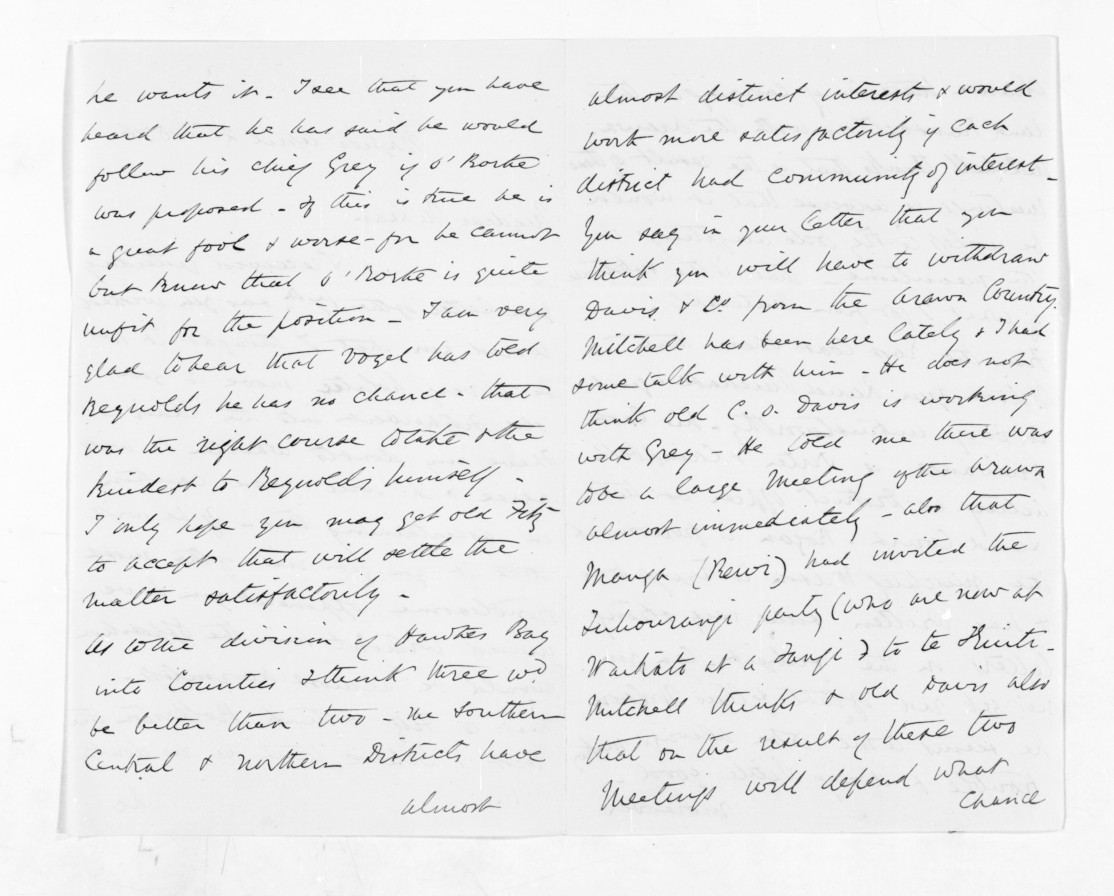 he wants it - I see that you have
heard that he has said he would
follow his chief Grey if O'Rorke
was proposed - If this is true he is
a great fool & worse - for he cannot
but know that O'Rorke is quite
unfit for the position - I am very
glad to hear that Vogel has told
Reynolds he has no chance - that
was the right course to take & the
kindest to Reynolds himself -
I only hope you may get old Fitz
to accept that will settle the
matter satisfactorily -
As to the division of Hawkes Bay
into Counties I think three wd
be better than two - the Southern
Central & Northern Districts have
almost
almost distinct interests & would
work more satisfactorily if each
district had community of interest -
You say in your letter that you
think you will have to withdraw
Davis & Co from the Arawa Country.
Mitchell has been here lately & I had
some talk with him - He does not
think old C. O. Davis is working
with Grey - He told me there was
to be a large meeting of the Arawa
almost immediately - also that
Manga (Rewi) had invited the
Tuhourangi party (who are now at
Waikato at a Tangi) to te Kuiti -
Mitchell thinks & old Davis also
that on the result of these two
Meetings will depend what
chance